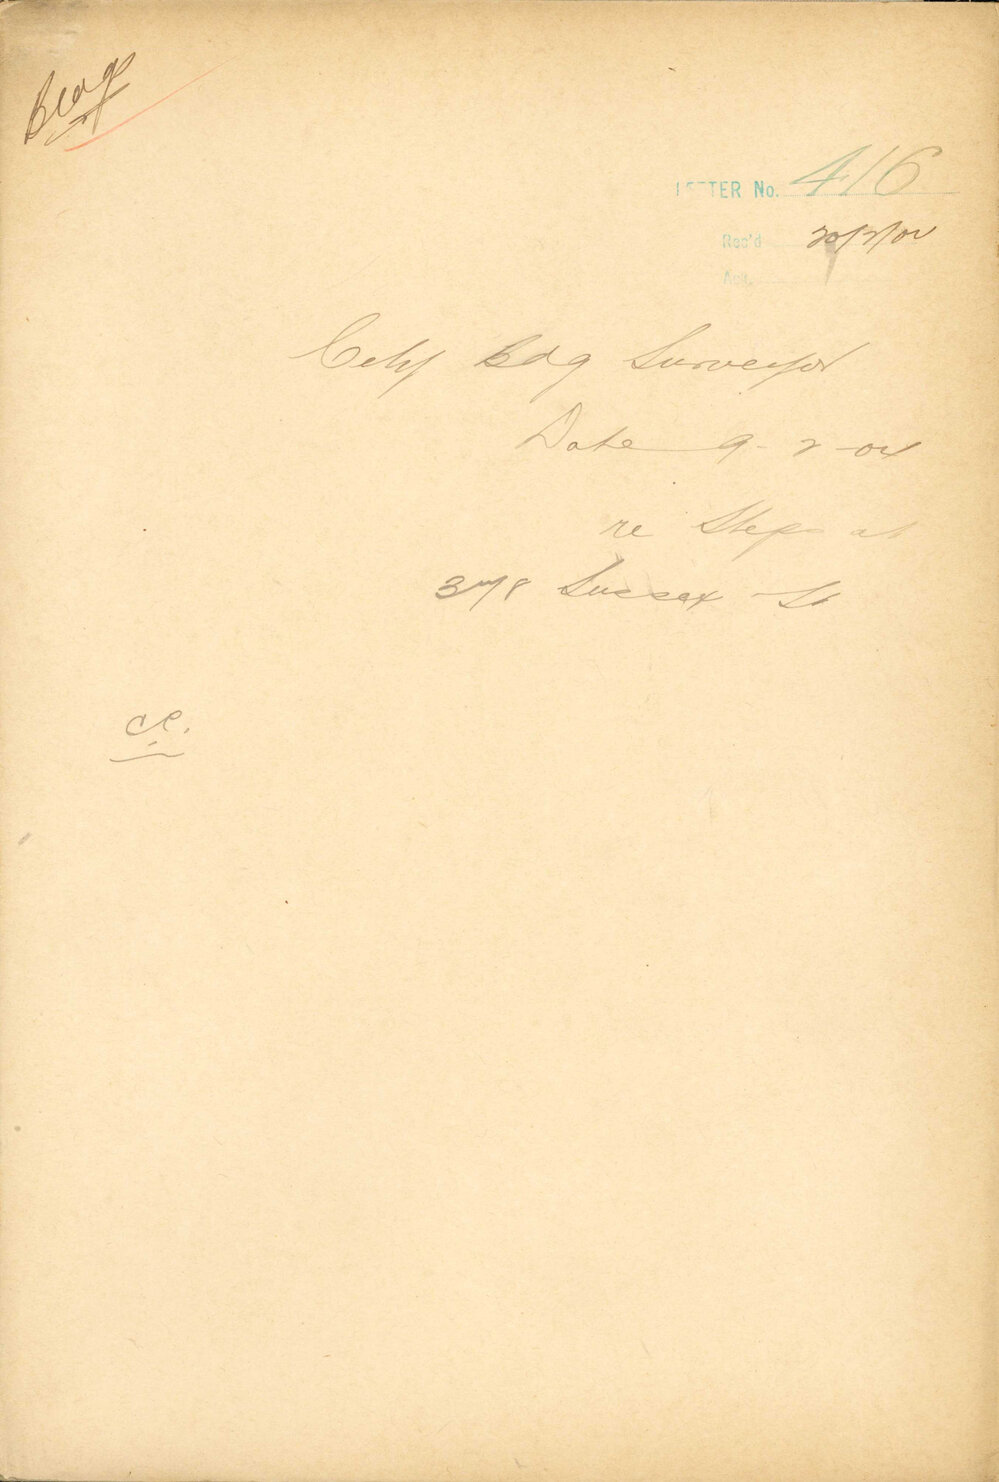 Bldg
LETTER No. 416
Rec'd 20/2/04
Ack.
City Bdg Surveyor
Date 9-2-04
re Steps at
378 Sussex St